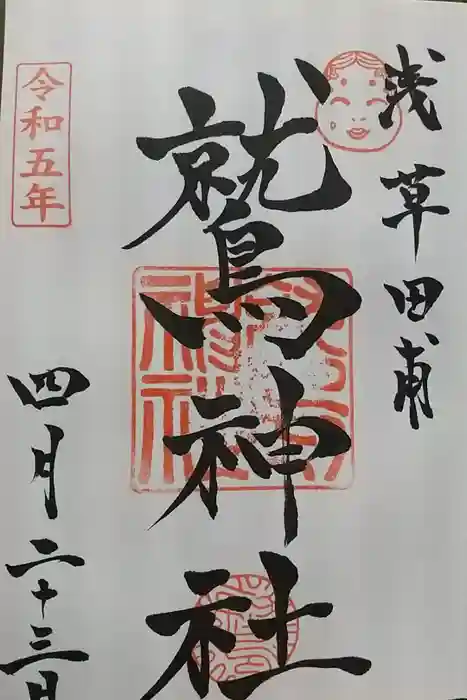 浅草田甫
鷲神社
令和五年
四月二十三日